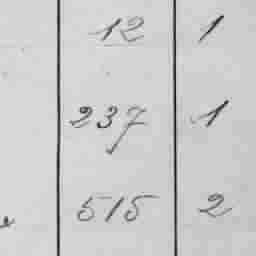 12 1
237 1
515 2